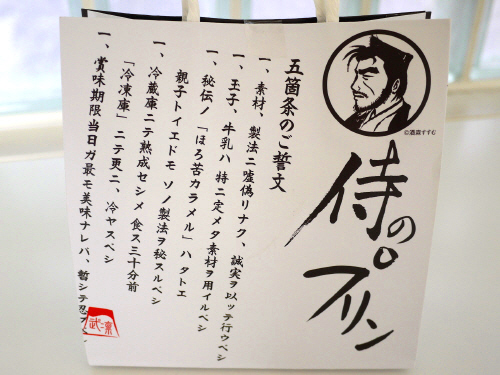 侍のプリン
©酒道すすむ
五箇条のご誓文
一、素材、製法ニ嘘偽リナク、誠実ヲ以ッテ行ウベシ
一、玉子、牛乳ハ 特ニ定メタ素材ヲ用イルベシ
一、秘伝ノ「ほろ苦カラメル」ハ タトエ
親子トイエドモ ソノ製法ヲ秘スルベシ
一、冷蔵庫ニテ熟成セシメ 食ス三十分前
「冷凍庫」ニテ更ニ、冷ヤスベシ
一、賞味期限当日ガ最モ美味ナレバ、暫シテ忍